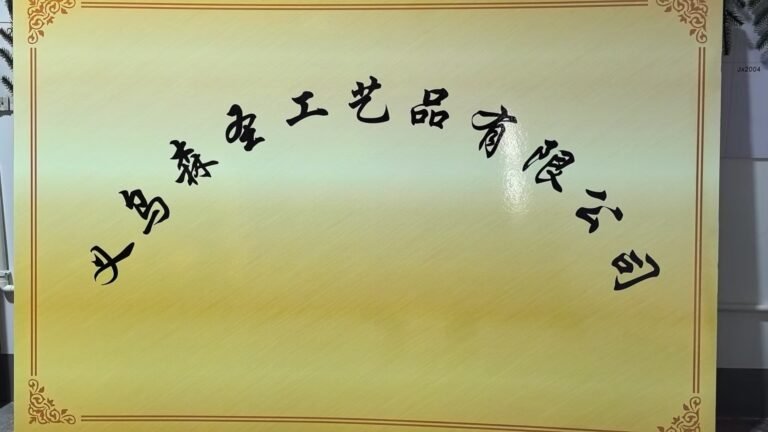 义乌森圣工艺品有限公司
JX2004